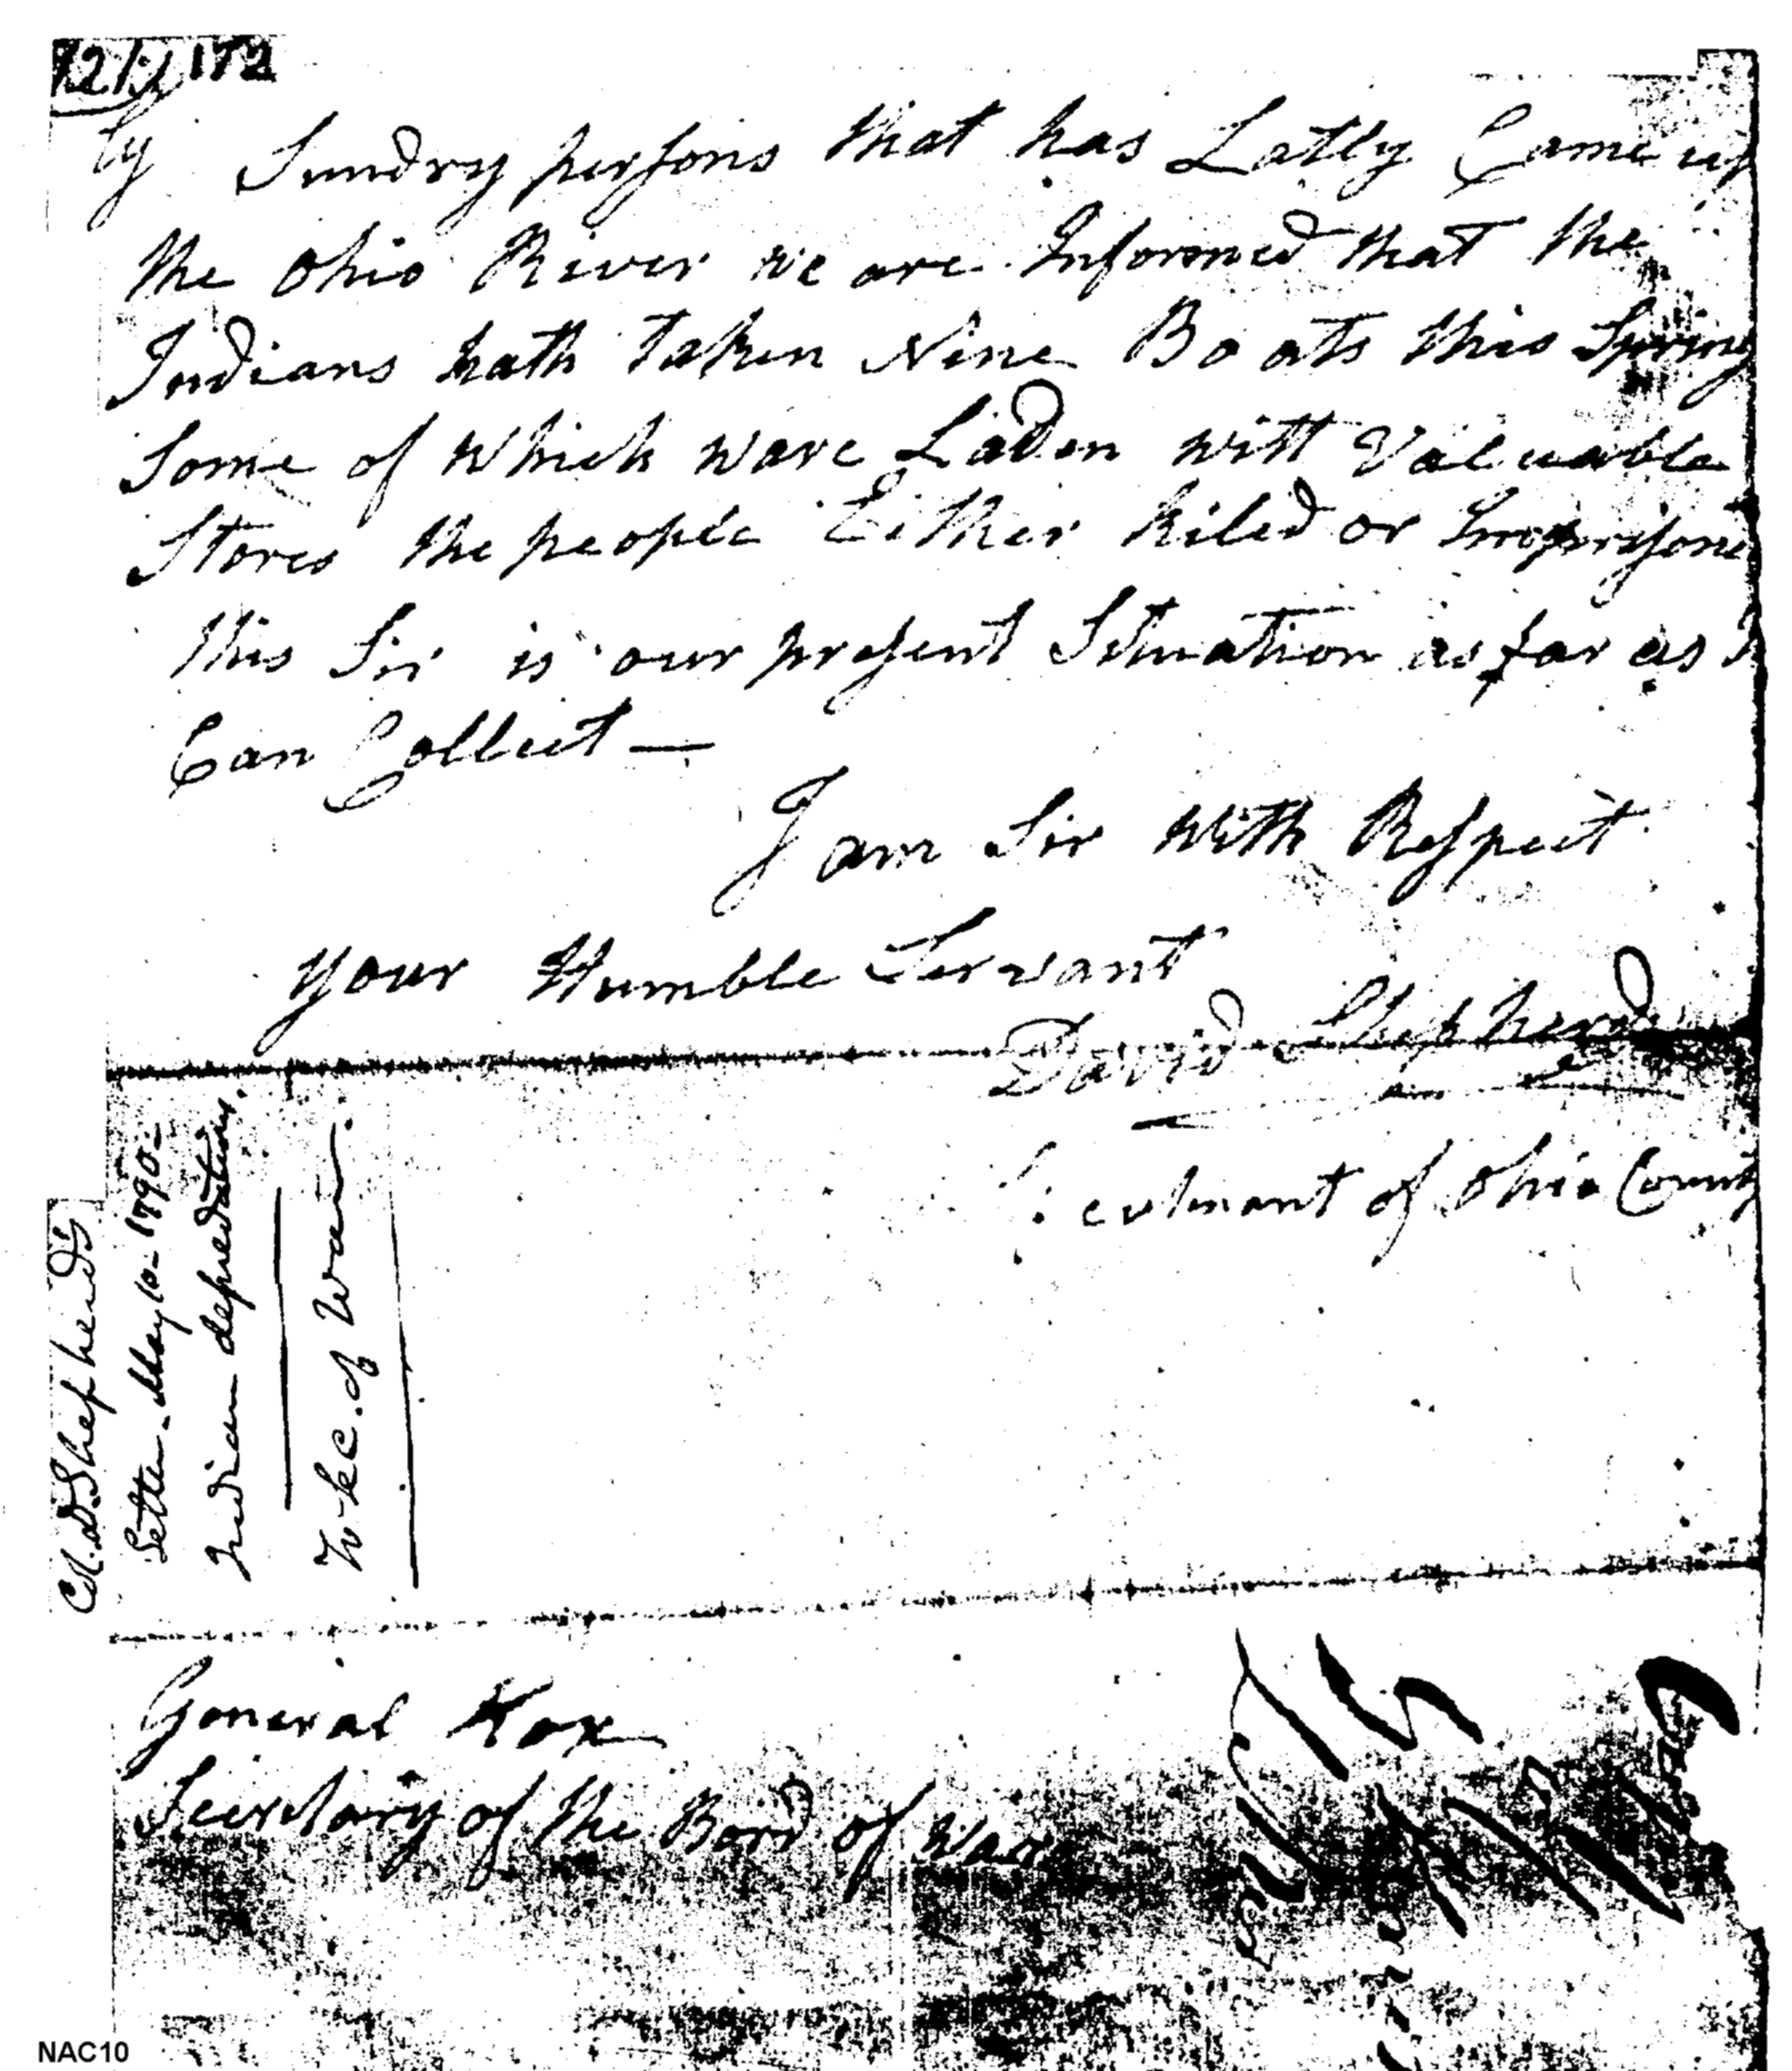 172
By Sundry persons that has Latly Came up
the Ohio River we are Informed that the
Indians hath Taken Nine Boats this Spring
Some of Which ware Laden witt Valuable
Stores the people Either kiled or Imprisoned
this Sir is our present Situation as far as I
Can Collect —
I am Sir with Respect
your Humble Servant
David Shepherd
Leutnant of Ohio County
Col. D. Shepherd's
Letter - May 10 - 1790 -
Indian depredations.
To Sec. of War.
General Nox
Secretary of the Bord of War
NAC10